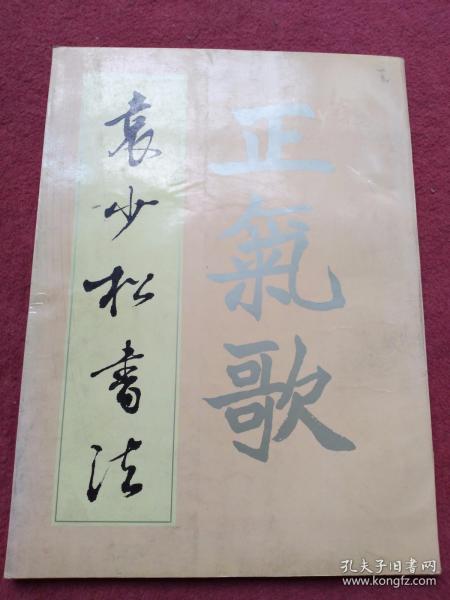 正氣歌
袁少松书法
孔夫子旧书网
www.kongfz.com